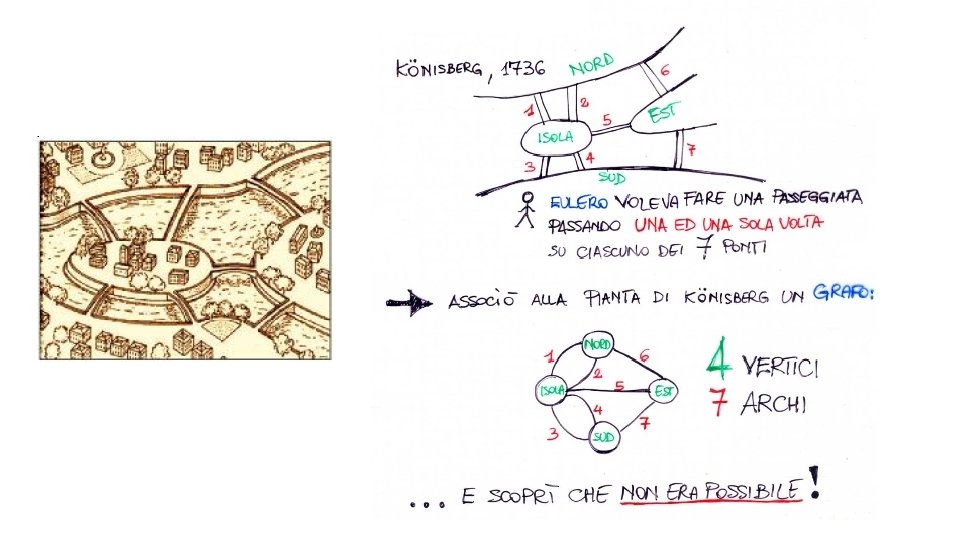 KÖNISBERG, 1736
NORD
6
1
2
5
EST
ISOLA
3
4
7
SUD
EULERO VOLEVA FARE UNA PASSEGGIATA
PASSANDO UNA ED UNA SOLA VOLTA
SU CIASCUNO DEI 7 PONTI
ASSOCIÒ ALLA PIANTA DI KÖNISBERG UN GRAFO:
NORD
1
2
6
ISOLA
5
EST
4
3
7
SUD
4 VERTICI
7 ARCHI
... E SCOPRÌ CHE NON ERA POSSIBILE!